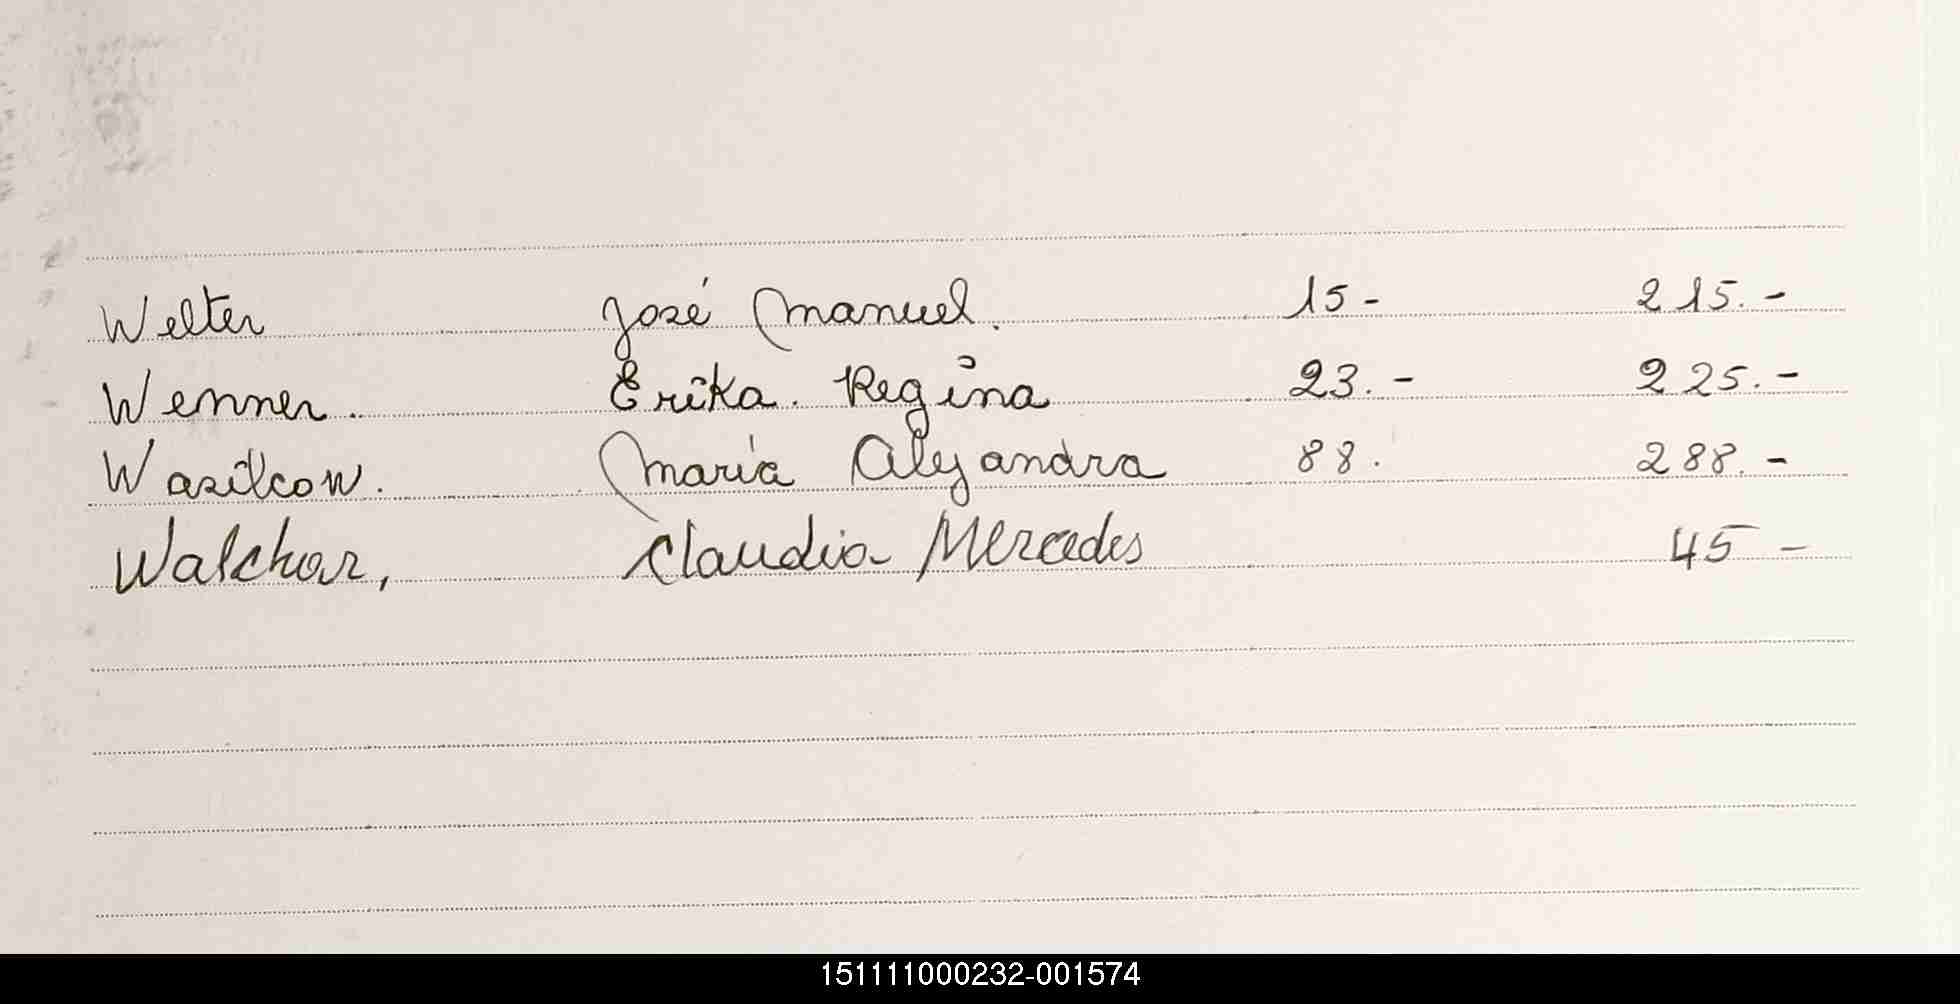 Welter José Manuel. 15- 215.-
Wenner. Erika. Regina 23.- 225.-
Wasilcow. María Alejandra 88. 288.-
Walchar, Claudia Mercedes 45-
151111000232-001574